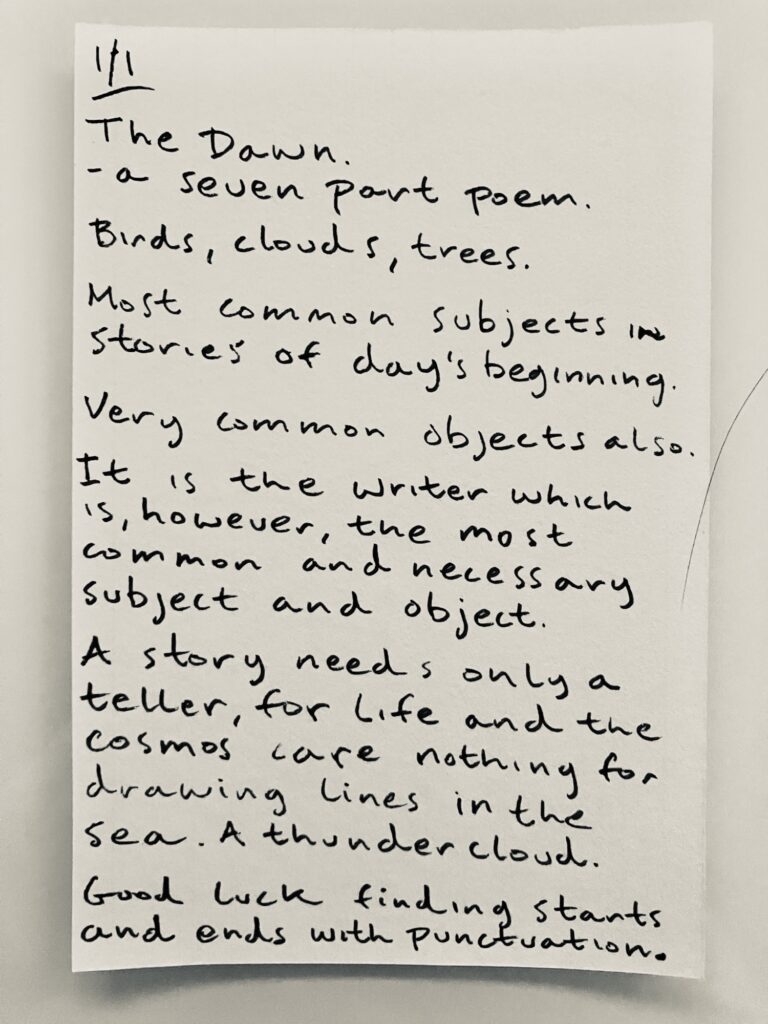 1/1
The Dawn.
- a seven part poem.
Birds, clouds, trees.
Most common subjects in
stories of day's beginning.
Very common objects also.
It is the writer which
is, however, the most
common and necessary
subject and object.
A story needs only a
teller, for life and the
cosmos care nothing for
drawing lines in the
sea. A thundercloud.
Good luck finding starts
and ends with punctuation.